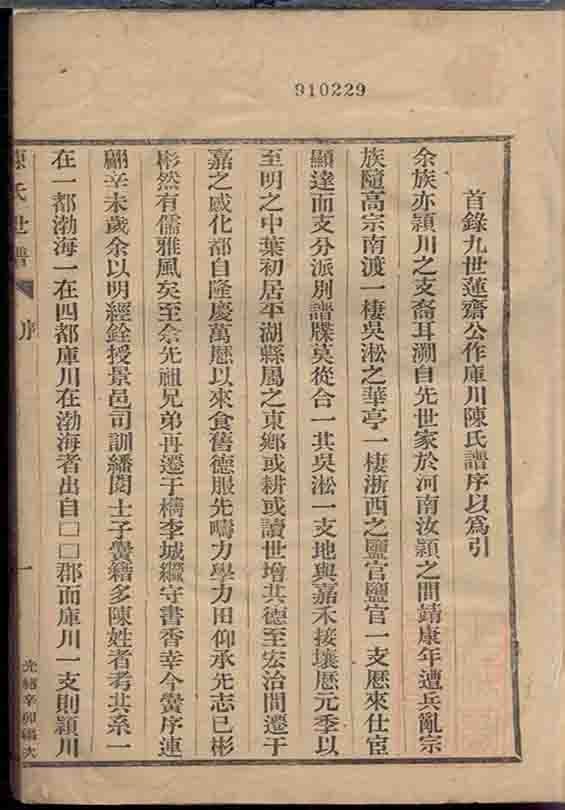 910229
首錄九世蓮齋公作庫川陳氏譜序以爲引
余族亦潁川之支裔耳溯自先世家於河南汝潁之間靖康年遭兵亂宗
族隨高宗南渡一棲吳淞之華亭一棲浙西之鹽官鹽官一支歷來仕宦
顯達而支分派別譜牒莫從合一其吳淞一支地與嘉禾接壤歷元季以
至明之中葉初居平湖縣屬之東鄉或耕或讀世增其德至宏治間遷于
嘉之感化都自隆慶萬曆以來食舊德服先疇力學力田仰承先志已彬
彬然有儒雅風矣至余先祖兄弟再遷于檇李城繼守書香幸今黌序連
翩辛未歲余以明經銓授景邑司訓繙閱士子黌籍多陳姓者考其系一
在一都渤海一在四都庫川在渤海者出自□□郡而庫川一支則潁川
陳氏世譜
序
一
光緒辛卯編次